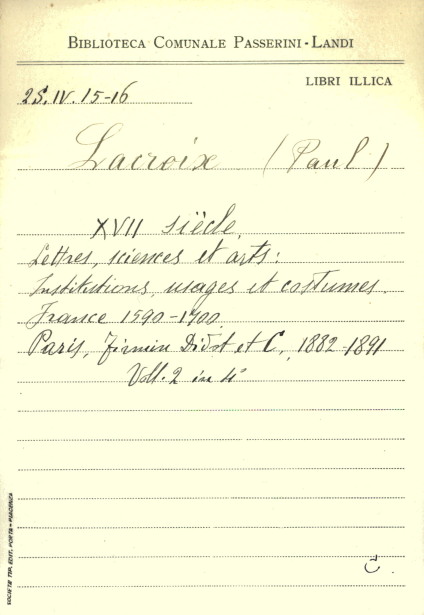 BIBLIOTECA COMUNALE PASSERINI-LANDI
LIBRI ILLICA
2S.IV.15-16
Lacroix (Paul)
XVII siècle.
Lettres, sciences et arts:
Institutions, usages et costumes.
France 1590-1700.
Paris, Firmin Didot et C., 1882-1891
Voll. 2 in 4°
SOCIETÀ TIP. EDIT. PORTA - PIACENZA